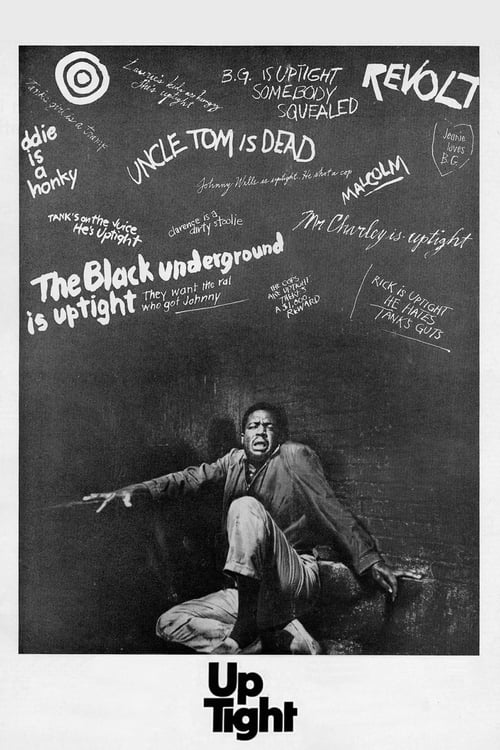 Laurie's kids are hungry
She's uptight
B.G. IS UPTIGHT
SOMEBODY
SQUEALED
REVOLT
Tank's girl is a tramp
ddie
is
a
honky
UNCLE TOM IS DEAD
Jeanie
loves
B.G.
Johnny Wells is uptight. He shot a cop
MALCOLM
TANK'S ON THE JUICE
He's Uptight
clarence is a
dirty stoolie
Mr Charley is uptight
The Black underground
is uptight
They want the rat
who got Johnny
THE COPS
ARE UPTIGHT
THERE'S
A $1,000
REWARD
RICK IS UPTIGHT
HE HATES
TANK'S GUTS
Up
Tight